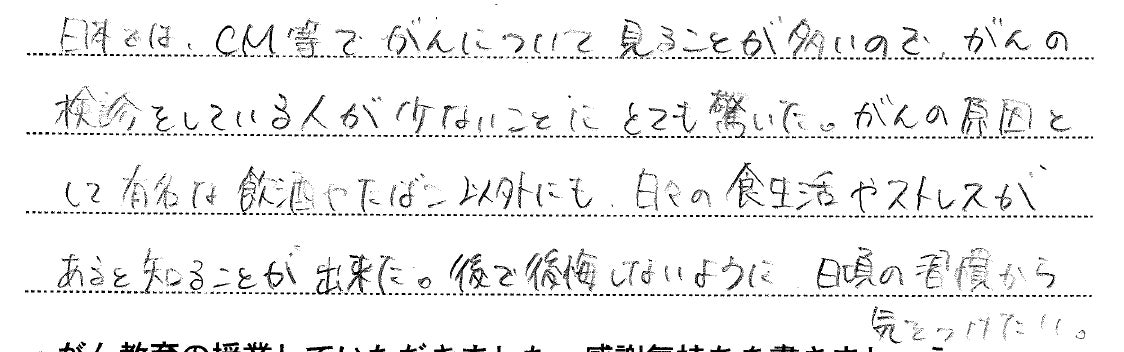 日本では、CM等でがんについて見ることが多いので、がんの
検診をしている人が少ないことにとても驚いた。がんの原因と
して有名な飲酒やたばこ以外にも、日々の食生活やストレスが
あると知ることが出来た。後で後悔しないように日頃の習慣から
気をつけたい。
がん教育の授業していただきました